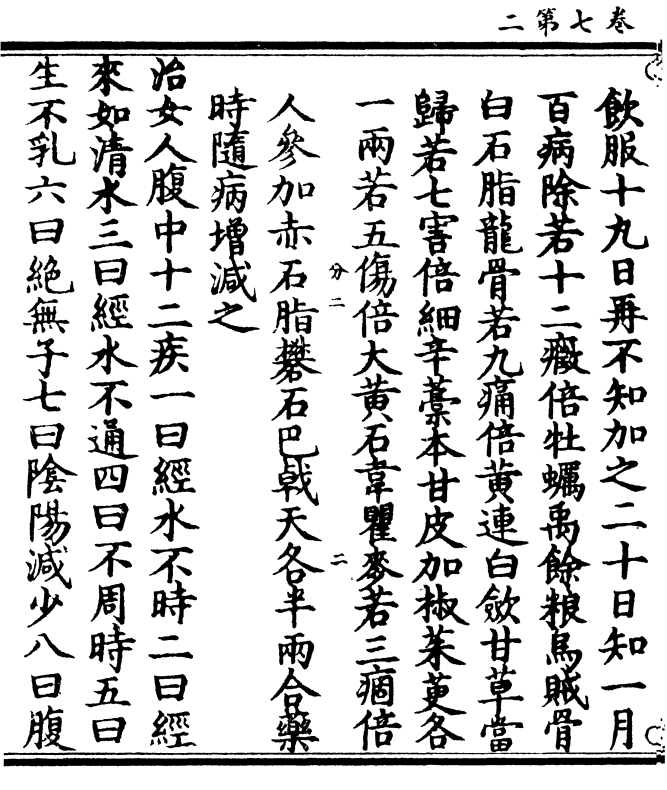 卷七第二
飲服十九日再不知加之二十日知一月
百病除若十二癥倍牡蠣禹餘粮烏賊骨
白石脂龍骨若九痛倍黃連白歛甘草當
歸若七害倍細辛藁本甘皮加椒茱萸各
一兩若五傷倍大黃石韋瞿麥若三痼倍
人參加赤石脂礬石巴戟天各半兩合藥
時隨病增減之
治女人腹中十二疾一曰經水不時二曰經
來如清水三曰經水不通四曰不周時五曰
生不乳六曰絶無子七曰陰陽減少八曰腹
分二
二